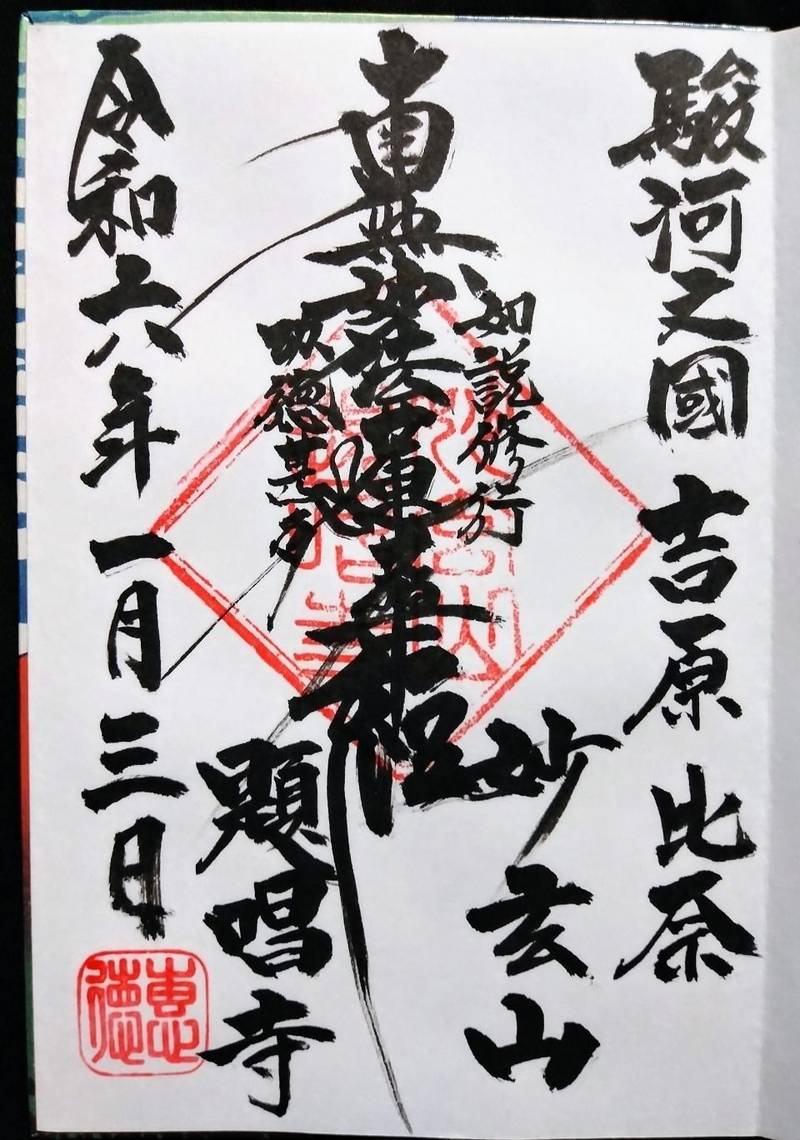 駿河之國 吉原 比奈
如説修行
妙玄山
南無妙法蓮華経
功徳甚多
顕唱寺
令和六年 一月三日
恵徳